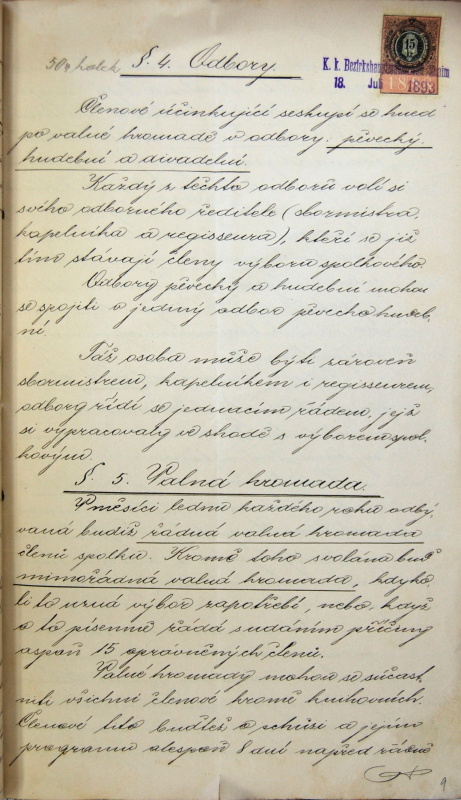 §. 4. Odbory.
15
K. k. Bezirkshau
18. Juli 1893
Členové účinkující seskupí se hned
po valné hromadě v odbory: pěvecký,
hudební a divadelní.
Každý z těchto odborů volí si
svého odborného ředitele (sbormistra,
kapelníka a regisseura), kteří se již
tím stávají členy výboru spolkového.
Odbory pěvecký a hudební mohou
se spojiti v jediný odbor pěvecko hudeb-
ní.
Táž osoba může býti zároveň
sbormistrem, kapelníkem i regisseurem,
odbory řídí se jednacím řádem, jejž
si vypracovaly ve shodě s výborem spol-
kovým.
§. 5. Valná hromada.
V měsíci lednu každého roku odbý-
vaná budiž řádná valná hromada
členů spolku. Kromě toho svolána buď
mimořádná valná hromada, kdyko-
li to uzná výbor zapotřebí, nebo když
o to písemně žádá s udáním příčiny
aspoň 15 oprávněných členů.
Valné hromady mohou se súčast-
niti všichni členové kromě knihovních.
Členové tito buďtež o schůzi a jejím
programu alespoň 8 dní napřed řádně
9